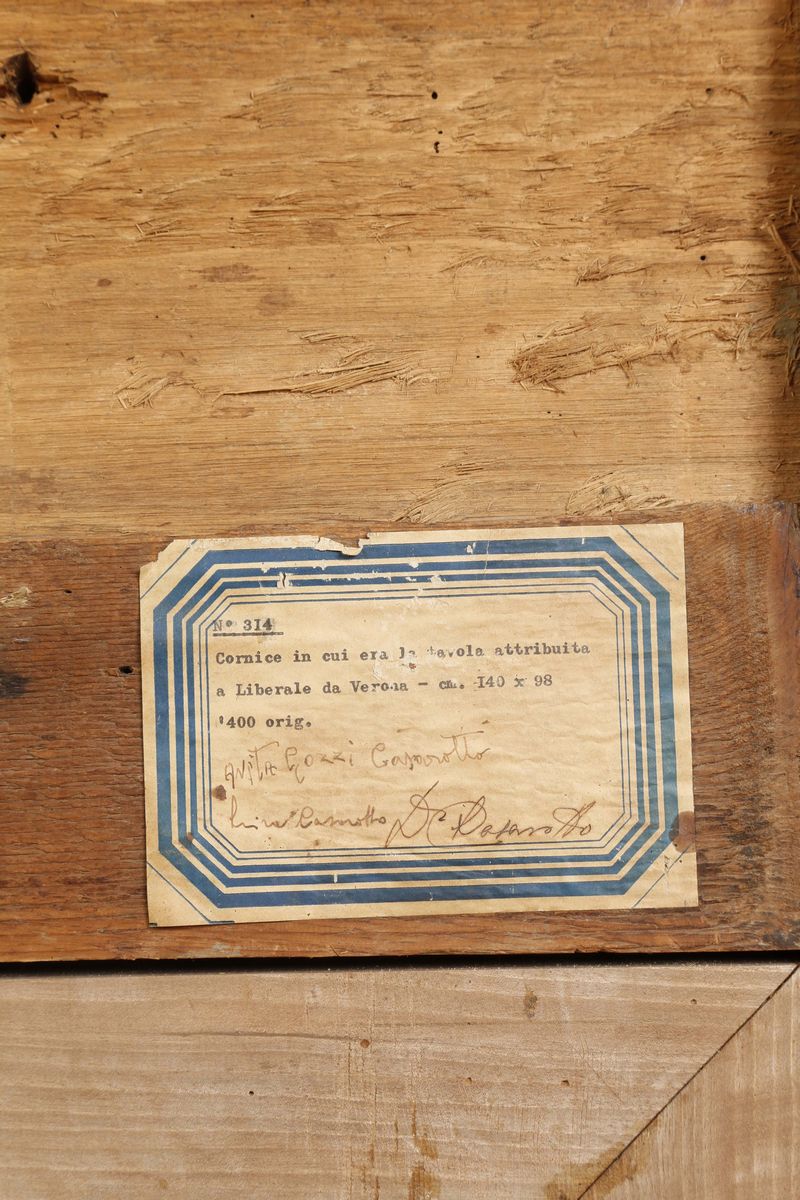 N° 314
Cornice in cui era la tavola attribuita
a Liberale da Verona - cm. I40 x 98
'400 orig.
Anita Gozzi Casarotto
Casarotto Casarotto